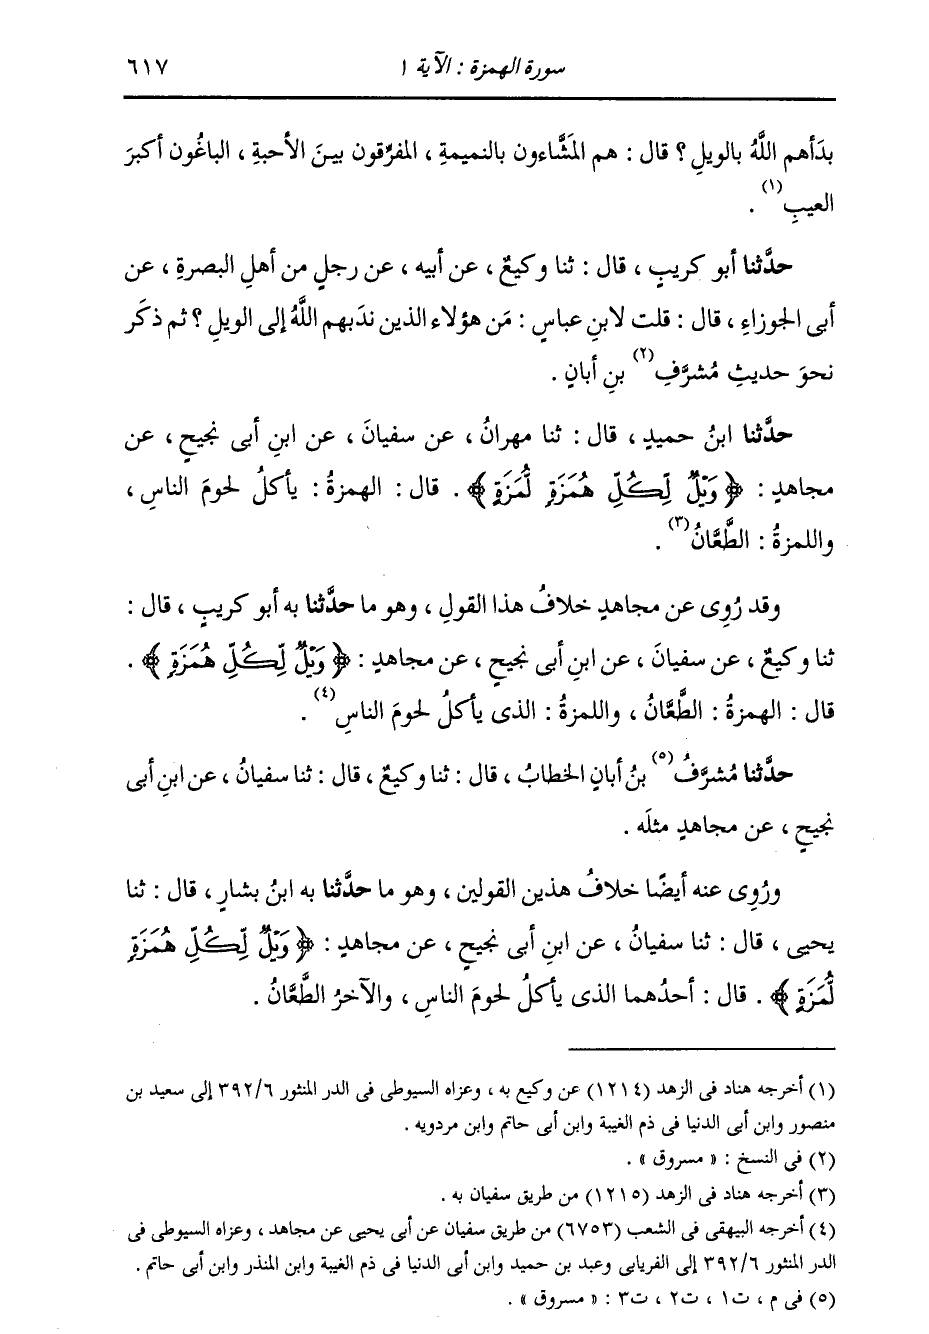 سورة الهمزة : الآية ١ ٦١٧
بدَأهم اللَّهُ بالويلِ ؟ قال : هم المَشَّاءون بالنميمةِ ، المفرِّقون بينَ الأحبةِ ، الباغُون أكبرَ
العيبِ(١) .
حدَّثنا أبو كريبٍ ، قال : ثنا وكيعٌ ، عن أبيه ، عن رجلٍ من أهلِ البصرةِ ، عن
أبى الجوزاءِ ، قال : قلت لابنِ عباسٍ : مَن هؤلاء الذين ندَبهم اللَّهُ إلى الويلِ ؟ ثم ذكَر
نحوَ حديثِ مُشرَّفِ(٢) بنِ أبانٍ .
حدَّثنا ابنُ حميدٍ ، قال : ثنا مهرانُ ، عن سفيانَ ، عن ابنِ أبى نجيحٍ ، عن
مجاهدٍ : ﴿ وَيْلٌ لِّكُلِّ هُمَزَةٍ لُّمَزَةٍ ﴾ . قال : الهمزةُ : يأكلُ لحومَ الناسِ ،
واللمزةُ : الطَّعَّانُ(٣) .
وقد رُوِى عن مجاهدٍ خلافُ هذا القولِ ، وهو ما حدَّثنا به أبو كريبٍ ، قال :
ثنا وكيعٌ ، عن سفيانَ ، عن ابنِ أبى نجيحٍ ، عن مجاهدٍ : ﴿ وَيْلٌ لِّكُلِّ هُمَزَةٍ ﴾ .
قال : الهمزةُ : الطَّعَّانُ ، واللمزةُ : الذى يأكلُ لحومَ الناسِ(٤) .
حدَّثنا مُشرَّفُ(٥) بنُ أبانٍ الخطابُ ، قال : ثنا وكيعٌ ، قال : ثنا سفيانُ ، عن ابنِ أبى
نجيحٍ ، عن مجاهدٍ مثلَه .
ورُوِى عنه أيضًا خلافُ هذين القولين ، وهو ما حدَّثنا به ابنُ بشارٍ ، قال : ثنا
يحيى ، قال : ثنا سفيانُ ، عن ابنِ أبى نجيحٍ ، عن مجاهدٍ : ﴿ وَيْلٌ لِّكُلِّ هُمَزَةٍ
لُّمَزَةٍ ﴾ . قال : أحدُهما الذى يأكلُ لحومَ الناسِ ، والآخرُ الطَّعَّانُ .
(١) أخرجه هناد فى الزهد (١٢١٤) عن وكيع به ، وعزاه السيوطى فى الدر المنثور ٣٩٢/٦ إلى سعيد بن
منصور وابن أبى الدنيا فى ذم الغيبة وابن أبى حاتم وابن مردويه .
(٢) فى النسخ : « مسروق » .
(٣) أخرجه هناد فى الزهد (١٢١٥) من طريق سفيان به .
(٤) أخرجه البيهقى فى الشعب (٦٧٥٣) من طريق سفيان عن أبى يحيى عن مجاهد ، وعزاه السيوطى فى
الدر المنثور ٣٩٢/٦ إلى الفريابى وعبد بن حميد وابن أبى الدنيا فى ذم الغيبة وابن المنذر وابن أبى حاتم .
(٥) فى م ، ت١ ، ت٢ ، ت٣ : « مسروق » .